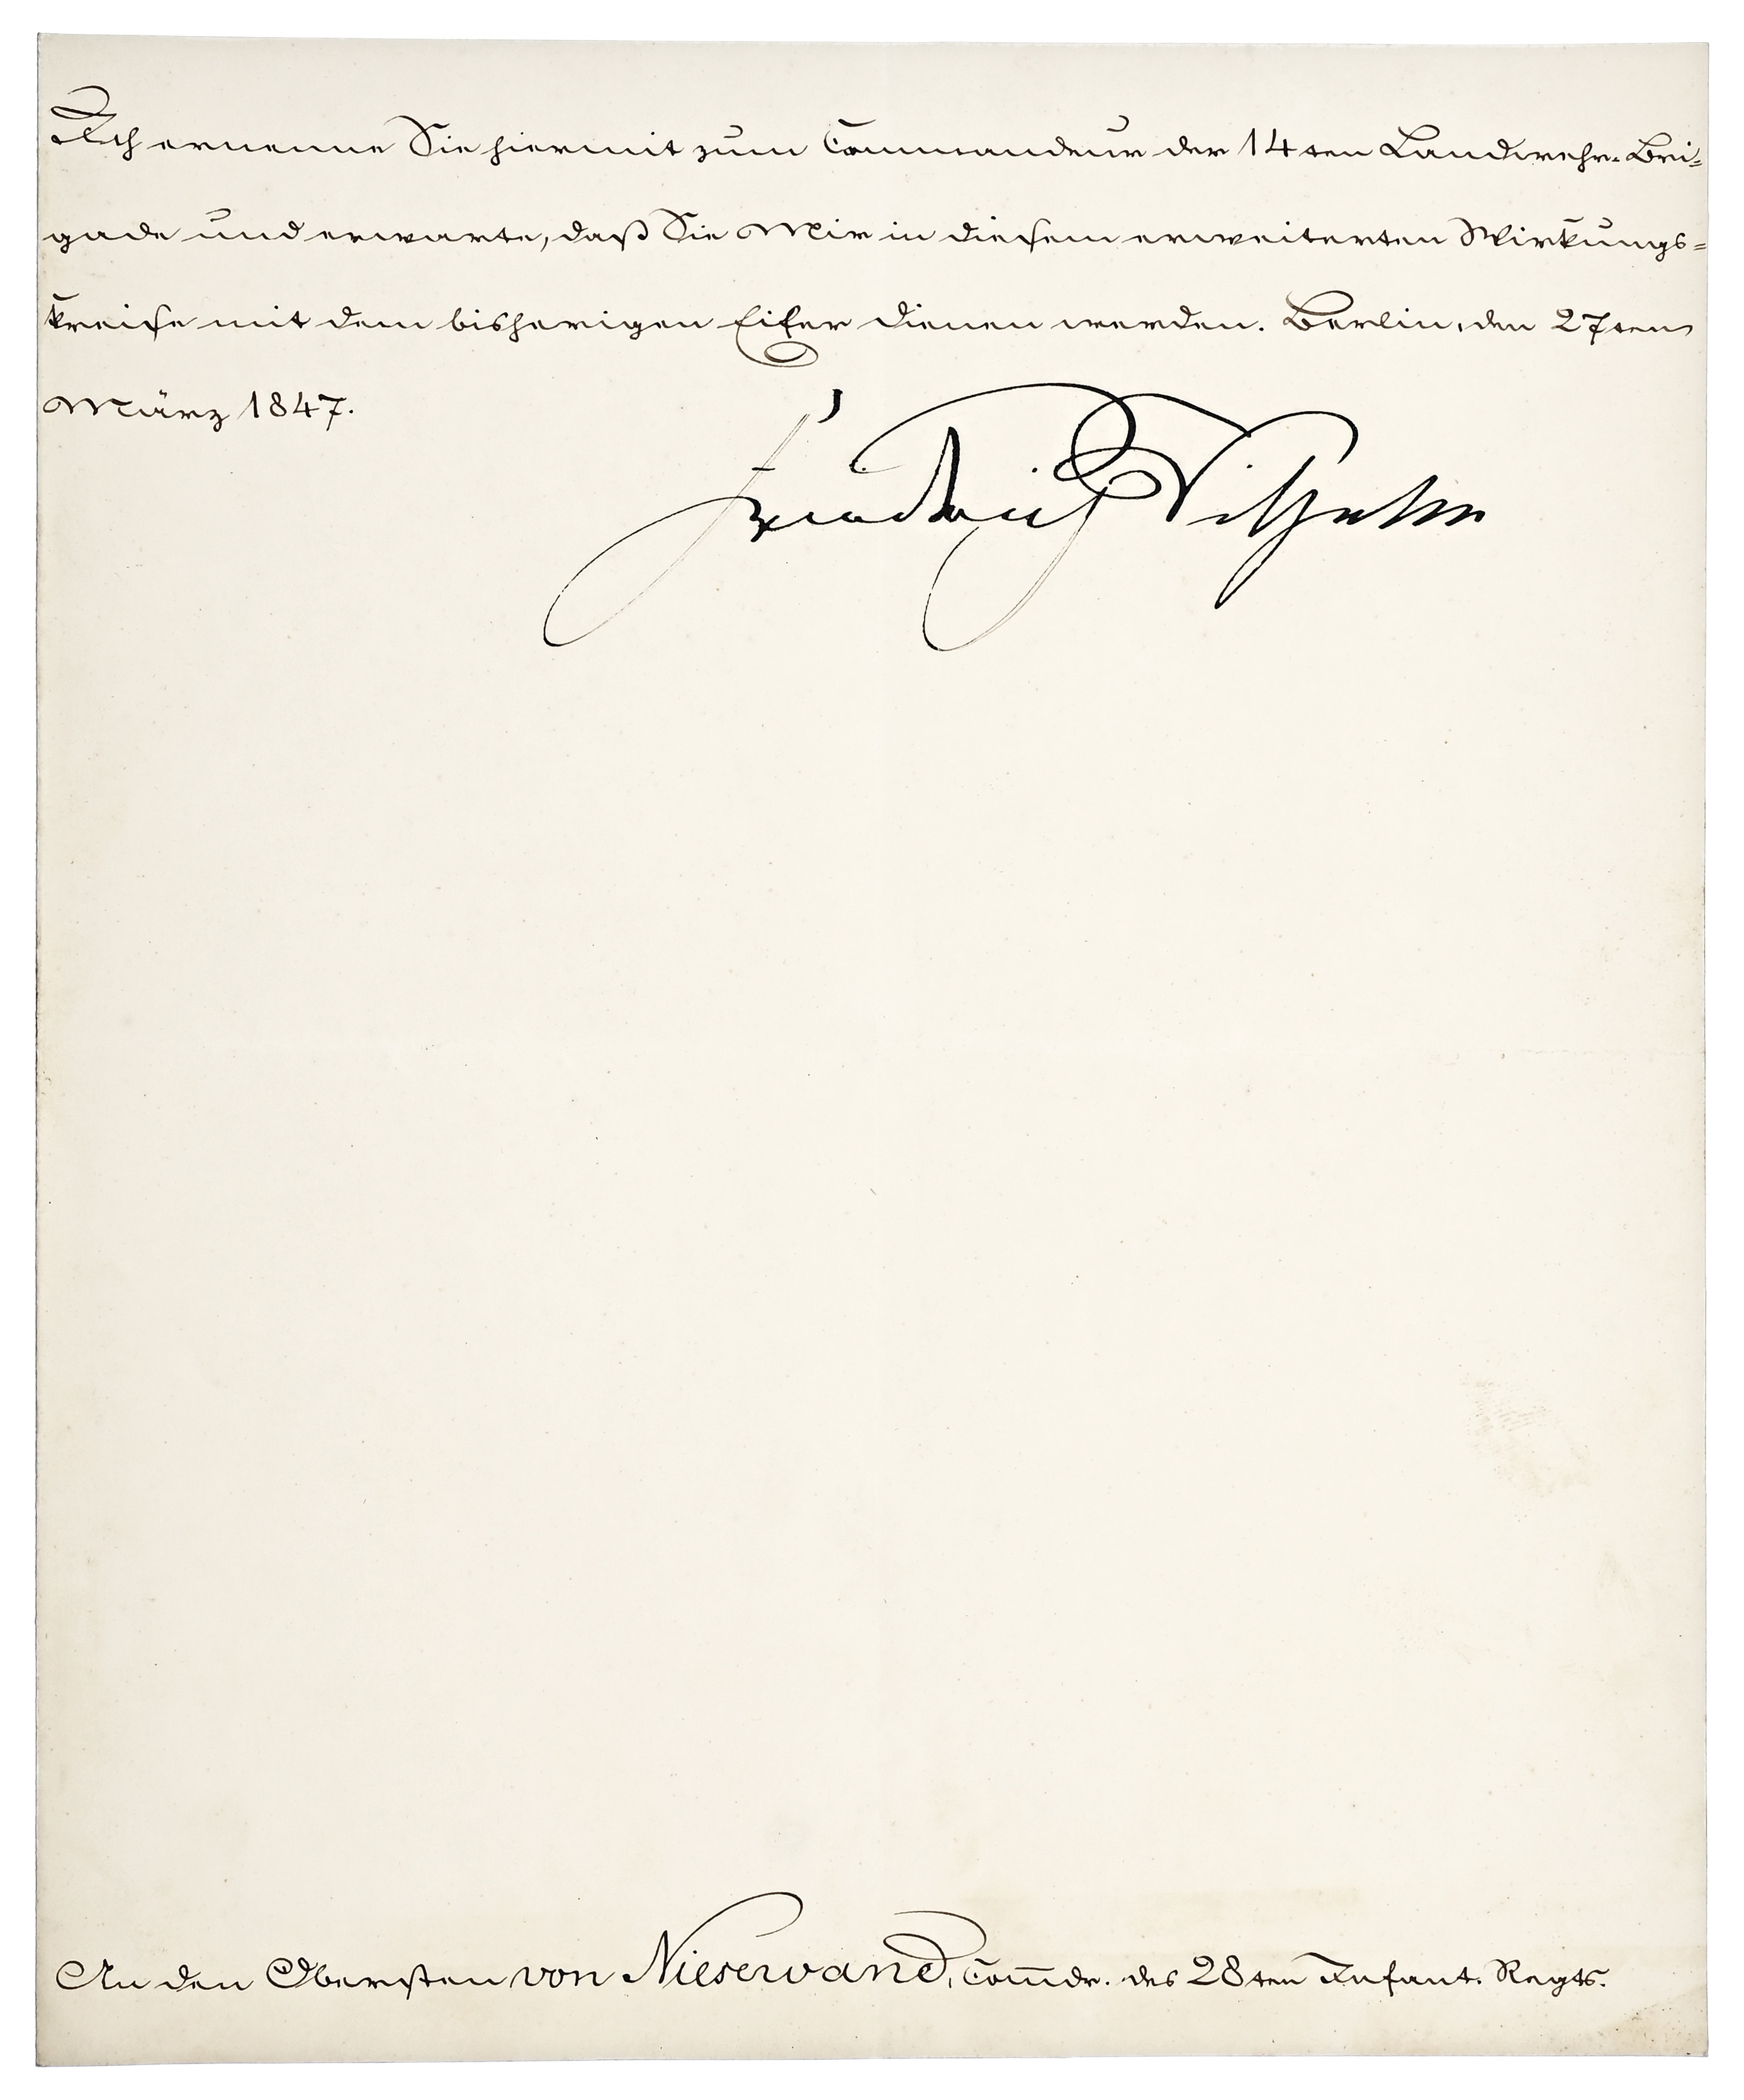 Ich ernenne Sie hiermit zum Commandeur der 14ten Landwehr-Bri=
gade und erwarte, daß Sie Mir in diesem erweiterten Wirkungs=
kreise mit dem bisherigen Eifer dienen werden. Berlin, den 27ten
März 1847.
Friedrich Wilhelm
An den Obersten von Niesewand, Com̅dr. des 28ten Infant. Regts.